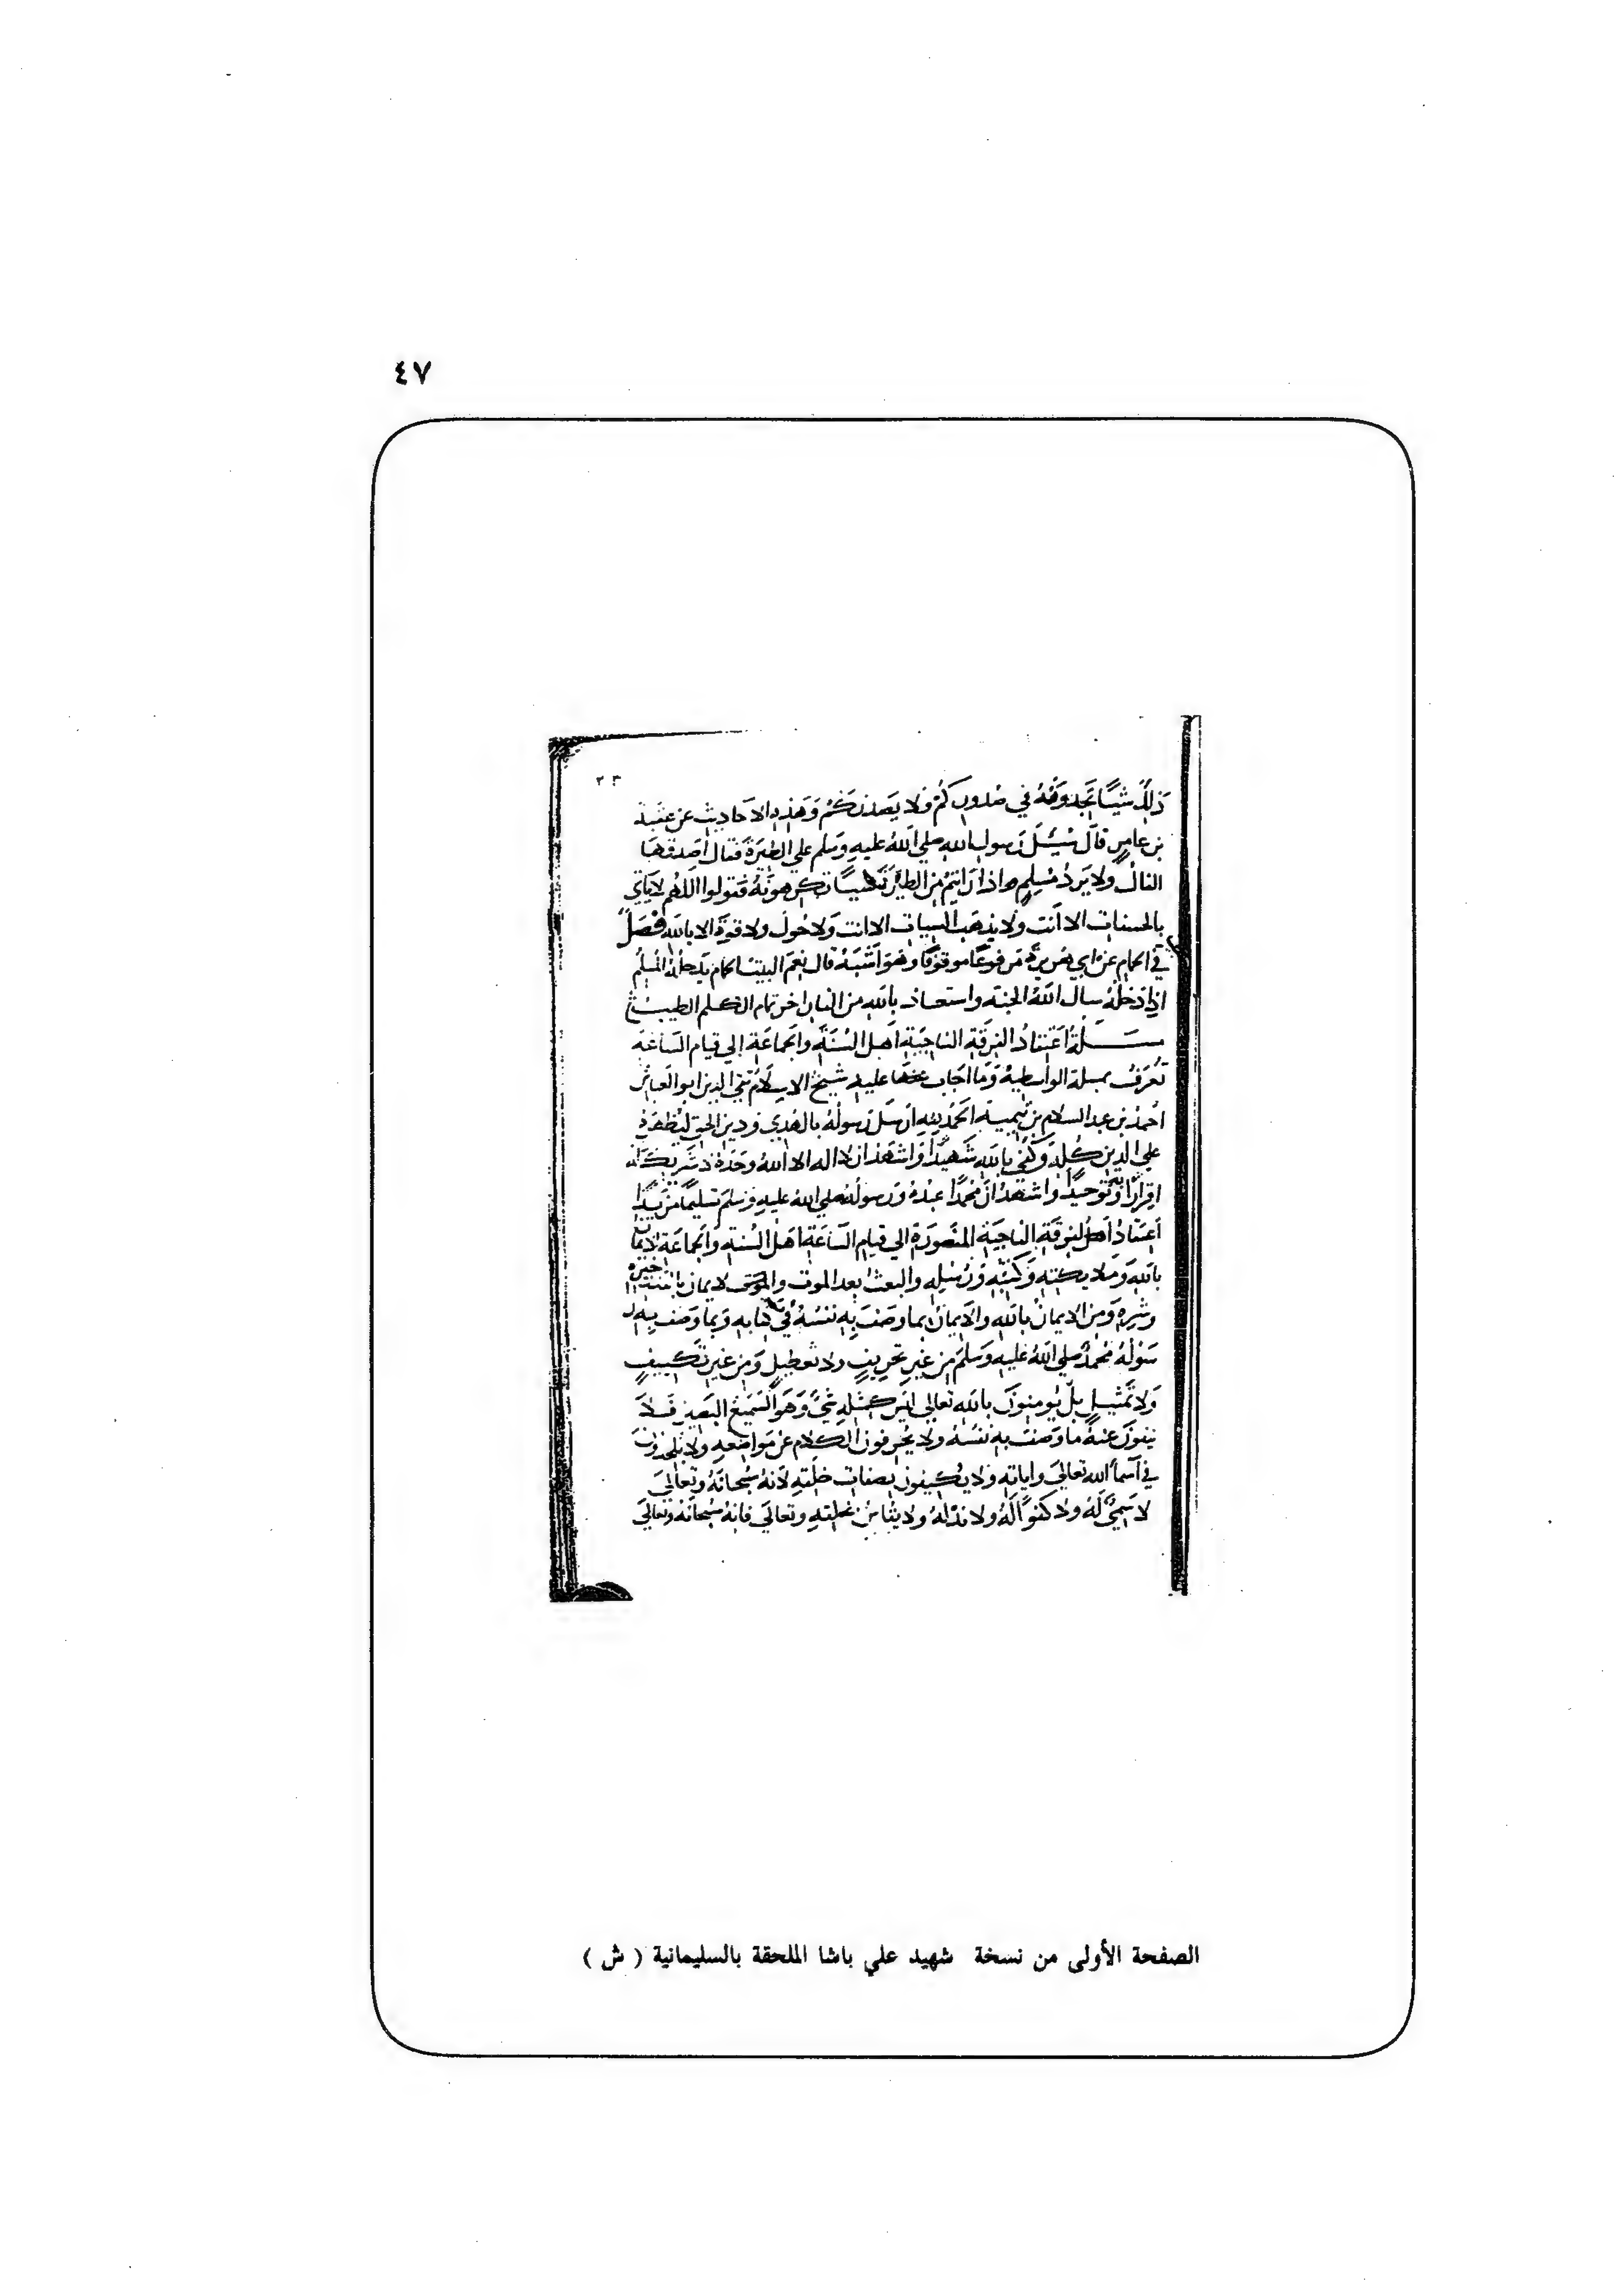 ٤٧
٢٣
ذلك شيأ تجدونه في صدوركم فلا يصدنكم وهذه الاحاديث عن عقبة
بن عامر قال سئل رسول الله صلي الله عليه وسلم علي الطيرة فقال اصدقها
الفال ولا يرد مسلم واذا رايتم من الطير شيأ تكرهونه فقولوا اللهم لا ياتي
بالحسنات الا انت ولا يذهب السيات الا انت ولا حول ولا قوة الا بالله فصل
في الحمام عن ابي هريرة مرفوعا موقوفا وهو اشبه قال نعم البيت الحمام يدخله المسلم
اذا دخله سال الله الجنة واستعاذ بالله من النار اخر تمام الكلم الطيب
مسئلة اعتقاد الفرقة الناجية اهل السنة والجماعة الي قيام الساعة
تعرف بمسلة الواسطية وما اجاب عليه شيخ الاسلام تقي الدين ابو العباس
احمد بن عبد السلام بن تيمية الحمد لله ارسل رسوله بالهدي ودين الحق ليظهره
علي الدين كله وكفي بالله شهيدا واشهد ان لا اله الا الله وحده لا شريك له
اقرارا به وتوحيدا واشهد ان محمدا عبده ورسوله صلي الله عليه وسلم تسليما مزيدا
اعتقاد اهل الفرقة الناجية المنصورة الي قيام الساعة اهل السنة والجماعة الايمان
بالله وملايكته وكتبه ورسله والبعث بعد الموت والايمان بالقدر خيره
وشره ومن الايمان بالله والايمان بما وصف به نفسه في كتابه وبما وصف به ر
سوله محمد صلي الله عليه وسلم من غير تحريف ولا تعطيل ومن غير تكييف
ولا تمثيل بل يومنون بالله تعالي ليس كمثله شئ وهو السميع البصير فلا
ينفون عنه ما وصف به نفسه ولا يحرفون الكلام عن مواضعه ولا يلحدون
في اسماء الله تعالي واياته ولا يكيفون بصفات خلقه لانه سبحانه وتعالي
لا سمي له ولا كفوا له ولا ند له ولا يقاس بخلقه وتعالي فانه سبحانه وتعالي
الصفحة الأولى من نسخة شهيد علي باشا الملحقة بالسليمانية ( ش )